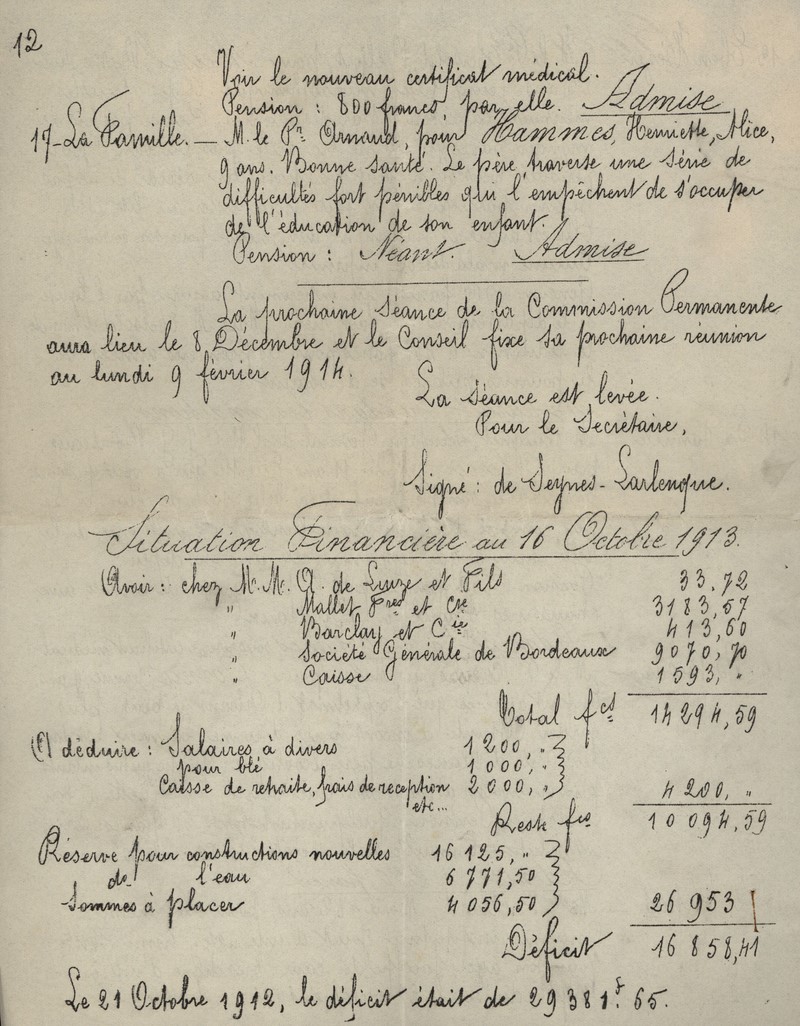 12
Voir le nouveau certificat médical.
Pension : 800 francs, par elle. Admise
17 - La Famille. — M. le Pr. Arnaud, pour Hammes, Henriette, Alice,
9 ans. Bonne santé. Le père traverse une série de
difficultés fort pénibles qui l'empêchent de s'occuper
de l'éducation de son enfant.
Pension : Néant. Admise
La prochaine séance de la Commission Permanente
aura lieu le 8 Décembre et le Conseil fixe sa prochaine réunion
au lundi 9 février 1914.
La séance est levée.
Pour le Secrétaire,
Signé : de Seynes-Larlenque.
Situation Financière au 16 Octobre 1913.
Avoir : chez M.M. A. de Luze et Fils 33,72
" Mallet Fres et Cie 3183,57
" Barclay et Cie 413,60
" Société Générale de Bordeaux 9070,70
" Caisse 1593, "
Total fcs 14294,59
A déduire : Salaires à divers 1200, "
pour blé 1000, "
Caisse de retraite, frais de reception 2000, " 4200, "
etc...
Reste fcs 10094,59
Réserve pour constructions nouvelles 16125, "
de l'eau 6771,50
Sommes à placer 4056,50 26953
Déficit 16858,41
Le 21 Octobre 1912, le déficit était de 29381f. 65.